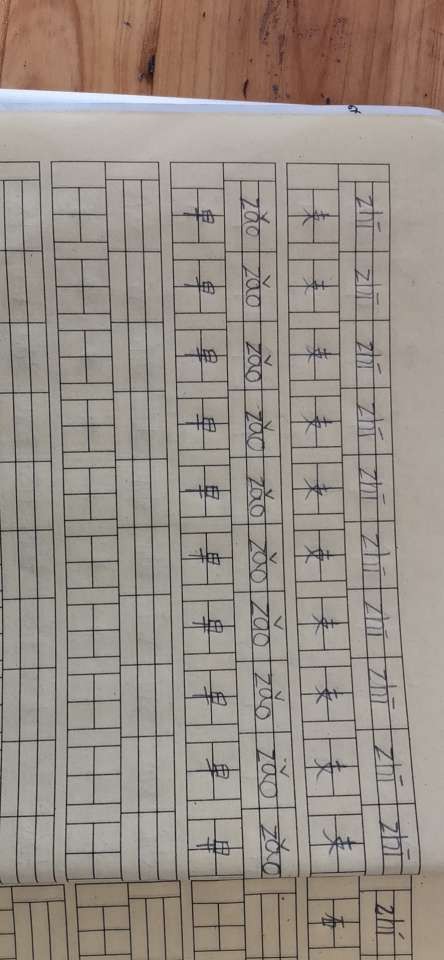 zhī zhī zhī zhī zhī zhī zhī zhī zhī zhī zhí
支 支 支 支 支 支 支 支 支 支
zǎo zǎo zǎo zǎo zǎo zǎo zǎo zǎo zǎo zǎo
早 早 早 早 早 早 早 早 早 早